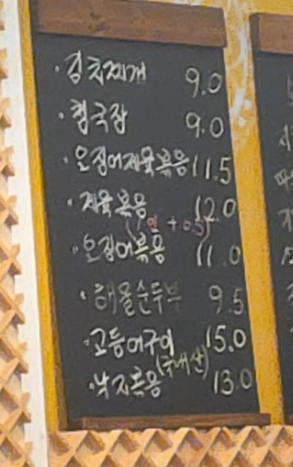 · 김치찌개 9.0
· 청국장 9.0
· 오징어제육볶음 11.5
· 제육볶음 12.0
(1인 +0.5)
· 오징어볶음 11.0
· 해물순두부 9.5
· 고등어구이 15.0
(국내산)
· 낙지볶음 13.0